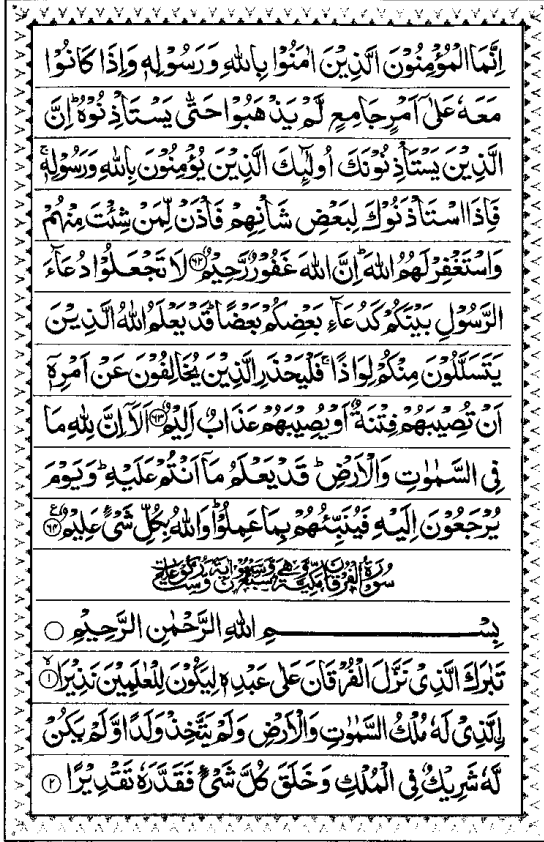 اِنَّمَا الْمُؤْمِنُوْنَ الَّذِيْنَ اٰمَنُوْا بِاللّٰهِ وَرَسُوْلِهٖ وَاِذَا كَانُوْا
مَعَهٗ عَلٰٓى اَمْرٍ جَامِعٍ لَّمْ يَذْهَبُوْا حَتّٰى يَسْتَاْذِنُوْهُ ؕ اِنَّ
الَّذِيْنَ يَسْتَاْذِنُوْنَكَ اُولٰٓئِكَ الَّذِيْنَ يُؤْمِنُوْنَ بِاللّٰهِ وَرَسُوْلِهٖ ۚ
فَاِذَا اسْتَاْذَنُوْكَ لِبَعْضِ شَاْنِهِمْ فَاْذَنْ لِّمَنْ شِئْتَ مِنْهُمْ
وَاسْتَغْفِرْ لَهُمُ اللّٰهَ ؕ اِنَّ اللّٰهَ غَفُوْرٌ رَّحِيْمٌ ۝۶۲ لَا تَجْعَلُوْا دُعَآءَ
الرَّسُوْلِ بَيْنَكُمْ كَدُعَآءِ بَعْضِكُمْ بَعْضًا ؕ قَدْ يَعْلَمُ اللّٰهُ الَّذِيْنَ
يَتَسَلَّلُوْنَ مِنْكُمْ لِوَاذًا ۚ فَلْيَحْذَرِ الَّذِيْنَ يُخَالِفُوْنَ عَنْ اَمْرِهٖٓ
اَنْ تُصِيْبَهُمْ فِتْنَةٌ اَوْ يُصِيْبَهُمْ عَذَابٌ اَلِيْمٌ ۝۶۳ اَلَاۤ اِنَّ لِلّٰهِ مَا
فِى السَّمٰوٰتِ وَالْاَرْضِ ؕ قَدْ يَعْلَمُ مَاۤ اَنْتُمْ عَلَيْهِ ؕ وَيَوْمَ
يُرْجَعُوْنَ اِلَيْهِ فَيُنَبِّئُهُمْ بِمَا عَمِلُوْا ؕ وَاللّٰهُ بِكُلِّ شَىْءٍ عَلِيْمٌ ۝۶۴
سُوْرَةُ الْفُرْقَانِ مَكِّيَّةٌ وَّهِيَ سَبْعٌ وَّسَبْعُوْنَ اٰيَةً وَّسِتُّ رُكُوْعَاتٍ
بِسْمِ اللّٰهِ الرَّحْمٰنِ الرَّحِيْمِ ۝
تَبٰرَكَ الَّذِىْ نَزَّلَ الْفُرْقَانَ عَلٰى عَبْدِهٖ لِيَكُوْنَ لِلْعٰلَمِيْنَ نَذِيْرَا ۝۱
ۨالَّذِىْ لَهٗ مُلْكُ السَّمٰوٰتِ وَالْاَرْضِ وَلَمْ يَتَّخِذْ وَلَدًا وَّلَمْ يَكُنْ
لَّهٗ شَرِيْكٌ فِى الْمُلْكِ وَخَلَقَ كُلَّ شَىْءٍ فَقَدَّرَهٗ تَقْدِيْرًا ۝۲